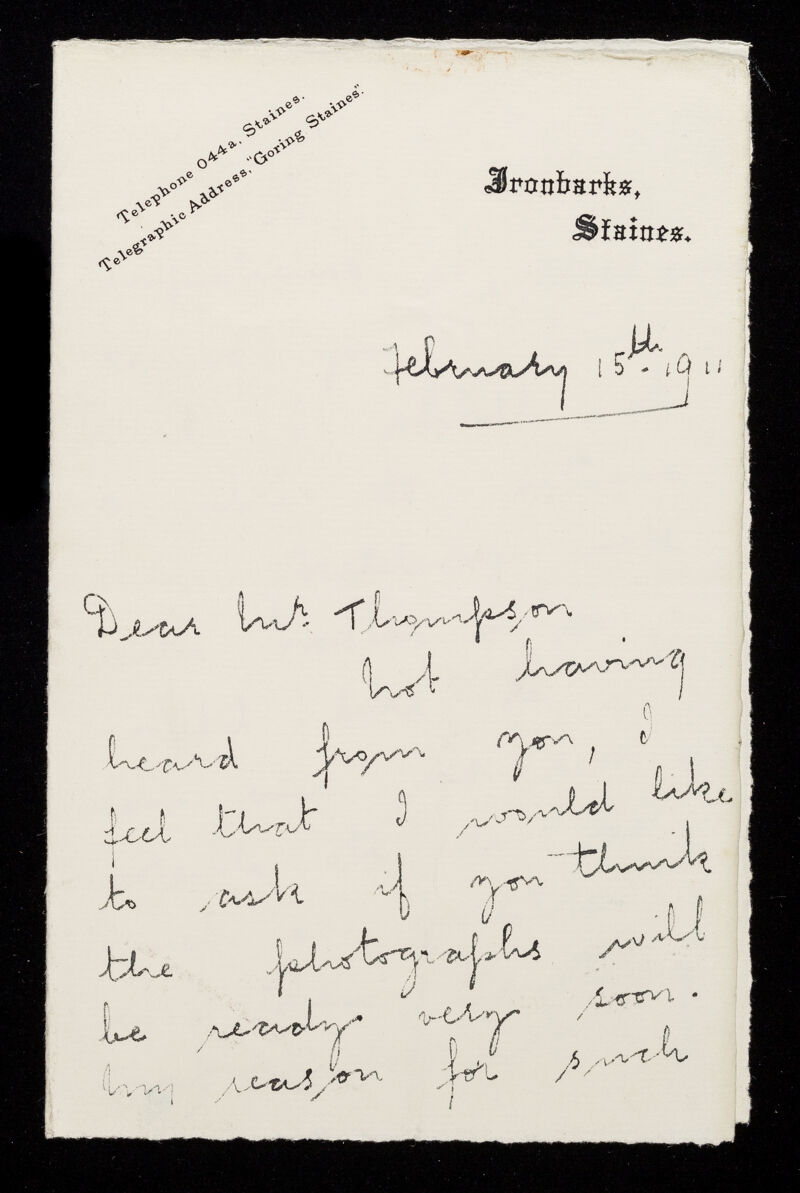 Telephone 044a, Staines.
Telegraphic Address, "Goring Staines".
Ironbarks,
Staines.
February 15th. 1911
Dear Mr. Thompson
Not having
heard from you, I
feel that I would like
to ask if you think
the photographs will
be ready very soon.
My reason for such